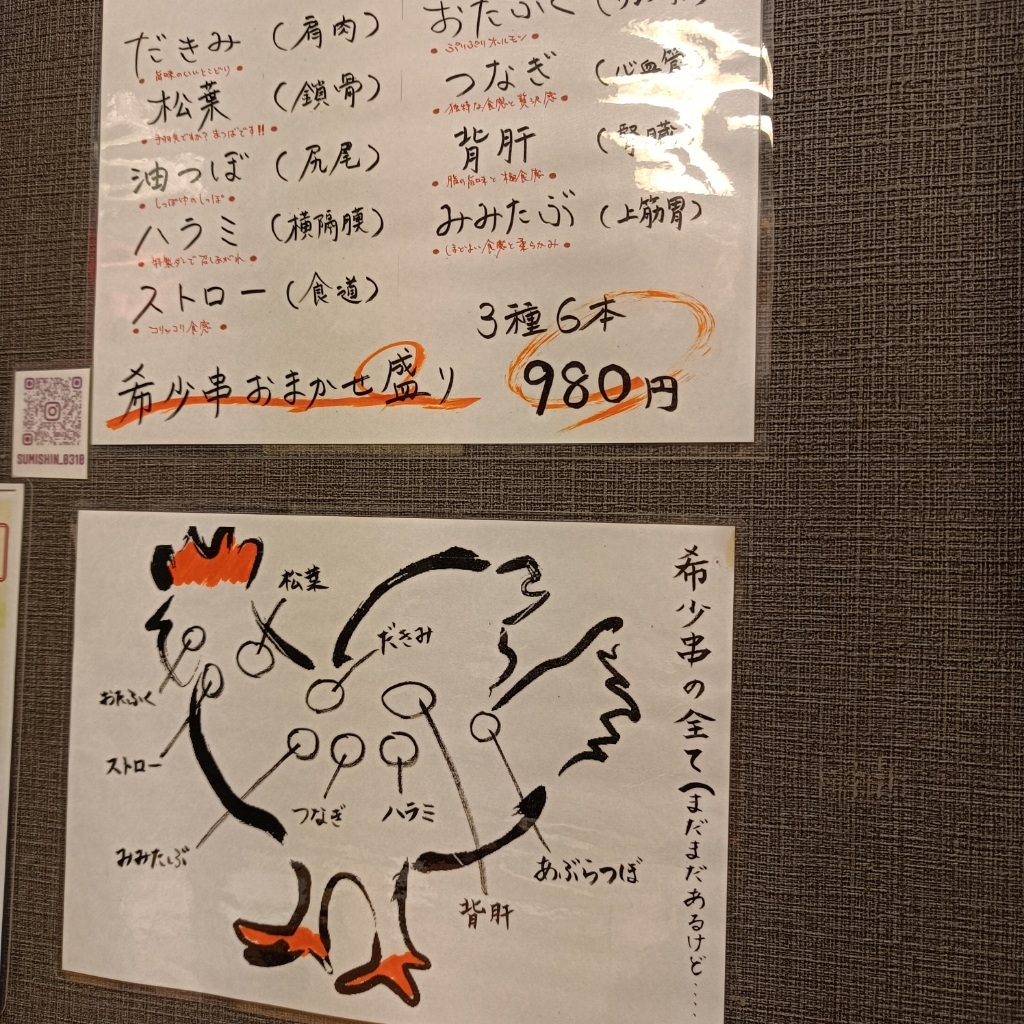 だきみ（肩肉）
旨味のいいとこどり
松葉（鎖骨）
手羽先ですか？まつばです!!
油つぼ（尻尾）
しっぽ中のしっぽ
ハラミ（横隔膜）
特製ダレで召しあがれ
ストロー（食道）
コリッコリ食感
おたふく
ぷりぷりホルモン
つなぎ（心血管）
独特な食感と贅沢感
背肝（腎臓）
脂の旨味と極食感
みみたぶ（上筋胃）
ほどよい食感と柔らかみ
3種6本
希少串おまかせ盛り 980円
SUMISHIN_8318
希少串の全て（まだまだあるけど....
松葉
だきみ
おたふく
ストロー
つなぎ
ハラミ
みみたぶ
あぶらつぼ
背肝